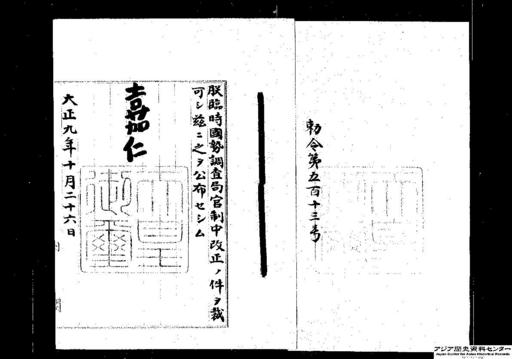 勅令第五百十三号
朕臨時國勢調査局官制中改正ノ件ヲ裁
可シ茲ニ之ヲ公布セシム
嘉仁
大正九年十月二十六日
天皇
御璽
アジア歴史資料センター
Japan Center for Asian Historical Records